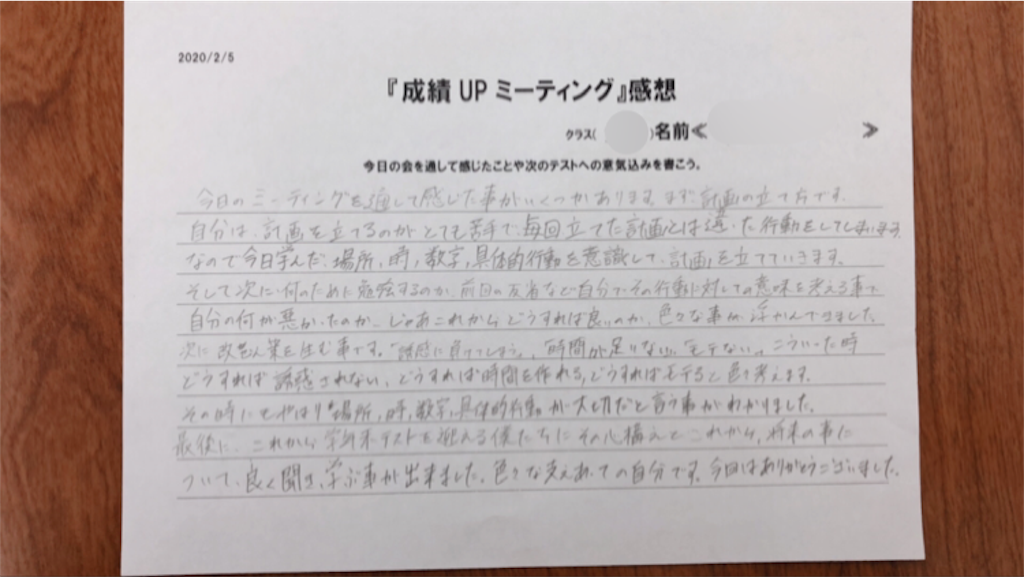 2020/2/5
『成績 UP ミーティング』感想
クラス( )名前≪ ≫
今日の会を通して感じたことや次のテストへの意気込みを書こう。
今日のミーティングを通して感じた事がいくつかあります。まず計画の立て方です。
自分は、計画を立てるのがとても苦手で、毎回立てた計画とは違った行動をしてしまいます。
なので今日学んだ、場所,時,数字,具体的行動を意識して、計画を立てていきます。
そして次に、何のために勉強するのか、前回の反省など自分で、その行動に対しての意味を考える事で
自分の何が悪かったのか、じゃあこれからどうすれば良いのか、色々な事が浮かんできました。
次に改善策を生む事です。「誘惑に負けてしまう」,「時間が足りない」,「モテない」。こういった時
どうすれば誘惑されない、どうすれば時間を作れる,どうすればモテると色々考えます。
その時にもやはり、場所,時,数字,具体的行動が大切だと言う事がわかりました。
最後に、これから学年末テストを迎える僕たちにその心構えとこれから、将来の事に
ついて、良く聞き、学ぶ事が出来ました。色々な支えあっての自分です。今日はありがとうございました。